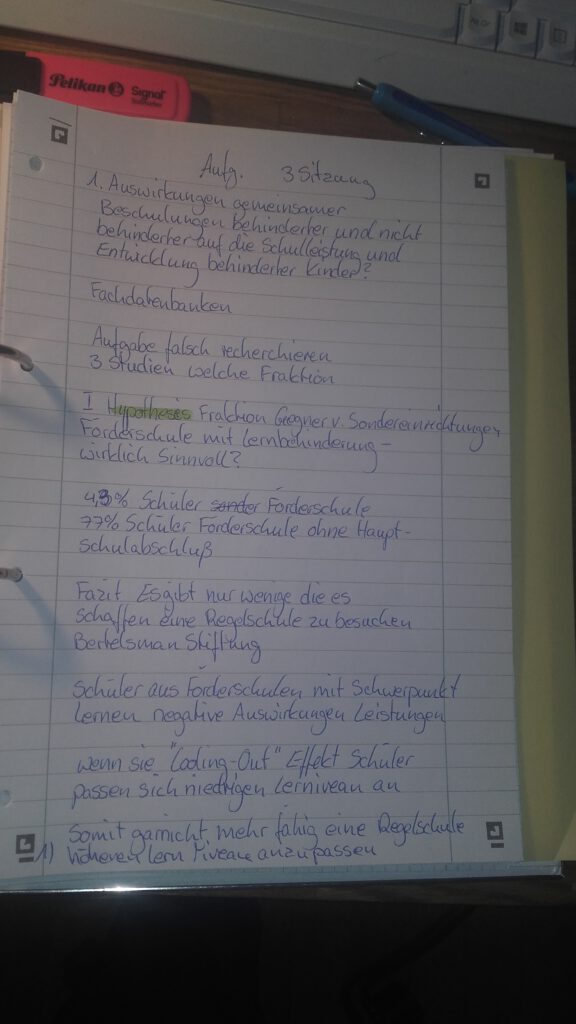 Pelikan Signal
Aufg. 3 Sitzung
1. Auswirkungen gemeinsamer
Beschulungen behinderter und nicht
behinderter auf die Schulleistung und
Entwicklung behinderter Kinder?
Fachdatenbanken
Aufgabe falsch recherchieren
3 Studien welche Fraktion
I Hypothesis Fraktion Gegner v. Sondereinrichtungen
Förderschule mit Lernbehinderung-
wirklich Sinnvoll?
4,3% Schüler sonder Förderschule
77% Schüler Förderschule ohne Haupt-
schulabschluß
Fazit Es gibt nur wenige die es
schaffen eine Regelschule zu besuchen
Bertelsman Stiftung
Schüler aus Förderschulen mit Schwerpunkt
lernen negative Auswirkungen Leistungen
wenn sie "Cooling-Out" Effekt Schüler
passen sich niedrigen Lerniveau an
Somit garnicht mehr fähig eine Regelschule
1) höheren lern Niveau anzupassen